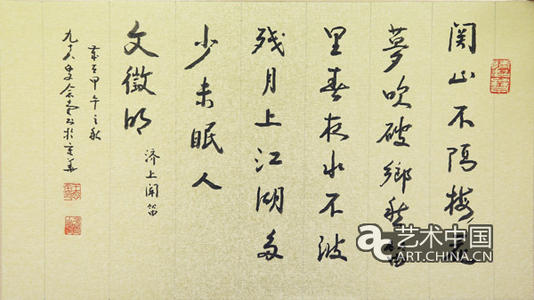 関山不隔梅花
夢吹破鄉愁
里春夜水不波
残月上江湖多
少未眠人
文徵明
济上闻笛
歲在甲午之秋
九十八叟
艺术中国
ART.CHINA.CN